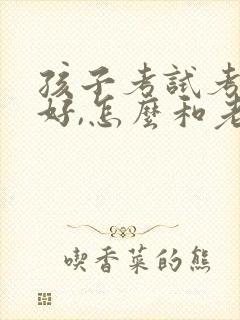 孩子考試考
好,怎麼和老
喫香菜的熊